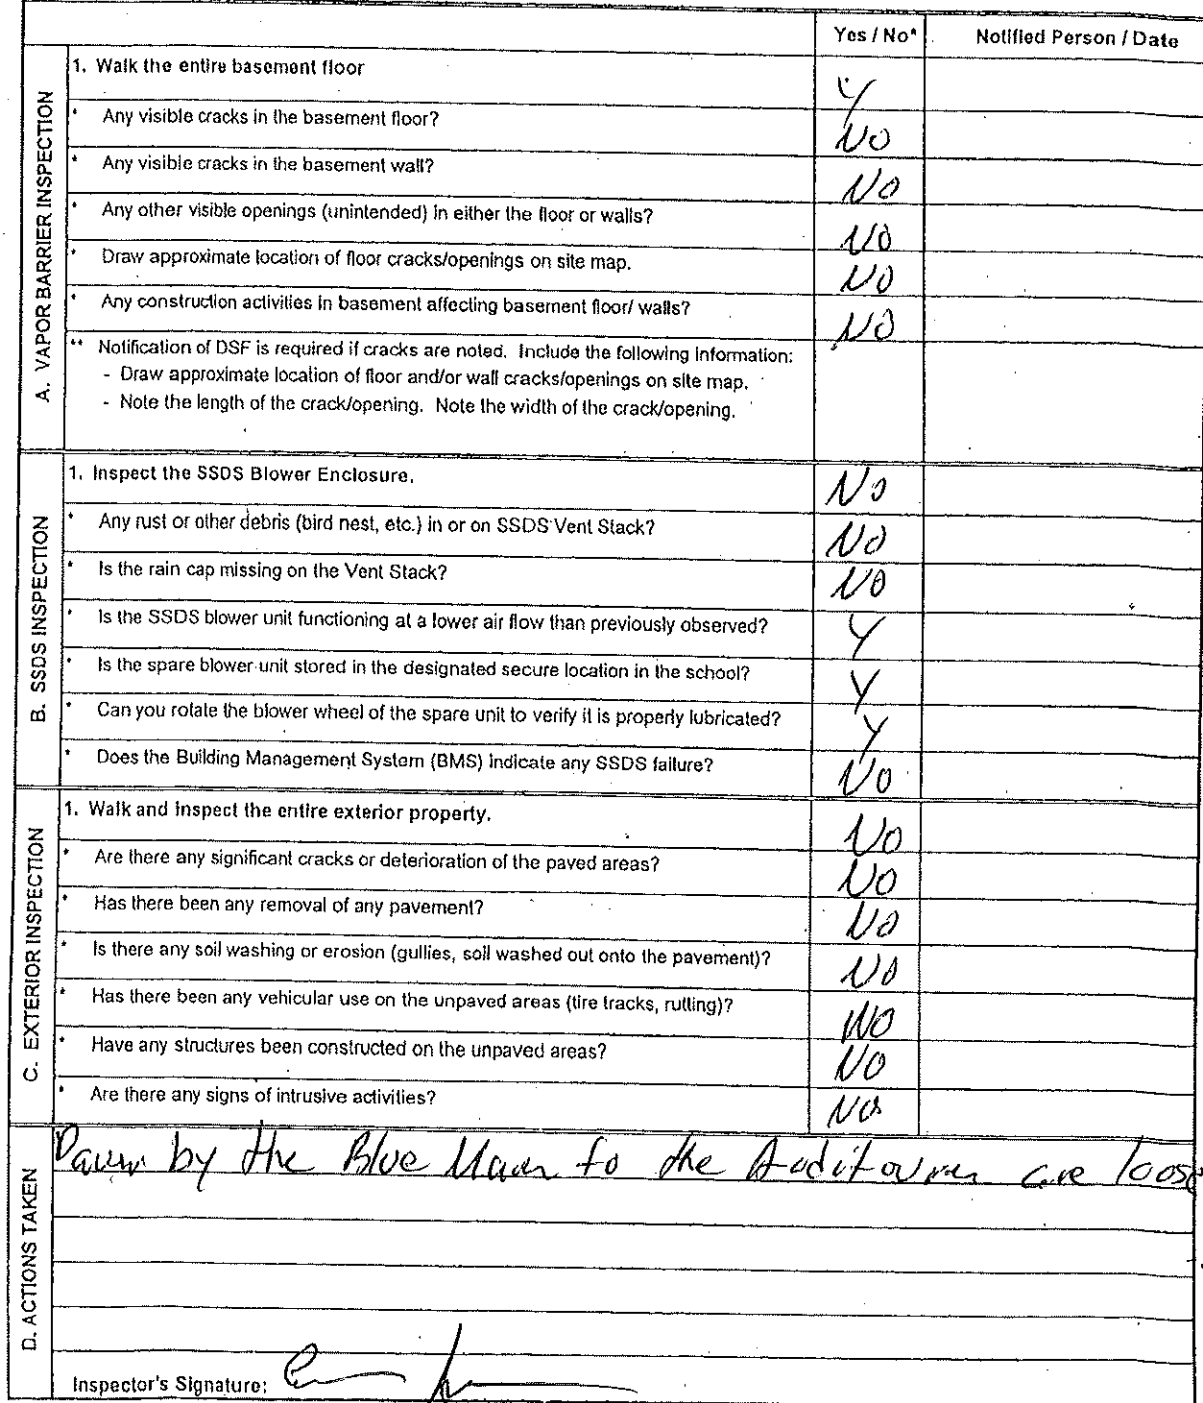 Yes / No* Notified Person / Date
A. VAPOR BARRIER INSPECTION
1. Walk the entire basement floor Y
* Any visible cracks in the basement floor? NO
* Any visible cracks in the basement wall? NO
* Any other visible openings (unintended) in either the floor or walls? NO
* Draw approximate location of floor cracks/openings on site map. NO
* Any construction activities in basement affecting basement floor/ walls? NO
** Notification of DSF is required if cracks are noted. Include the following information:
- Draw approximate location of floor and/or wall cracks/openings on site map.
- Note the length of the crack/opening. Note the width of the crack/opening.
B. SSDS INSPECTION
1. Inspect the SSDS Blower Enclosure. NO
* Any rust or other debris (bird nest, etc.) in or on SSDS Vent Stack? NO
* Is the rain cap missing on the Vent Stack? NO
* Is the SSDS blower unit functioning at a lower air flow than previously observed? Y
* Is the spare blower unit stored in the designated secure location in the school? Y
* Can you rotate the blower wheel of the spare unit to verify it is properly lubricated? Y
* Does the Building Management System (BMS) indicate any SSDS failure? NO
C. EXTERIOR INSPECTION
1. Walk and inspect the entire exterior property. NO
* Are there any significant cracks or deterioration of the paved areas? NO
* Has there been any removal of any pavement? NO
* Is there any soil washing or erosion (gullies, soil washed out onto the pavement)? NO
* Has there been any vehicular use on the unpaved areas (tire tracks, rutting)? NO
* Have any structures been constructed on the unpaved areas? NO
* Are there any signs of intrusive activities? NO
D. ACTIONS TAKEN
by the Blue to the are loose
Inspector's Signature: